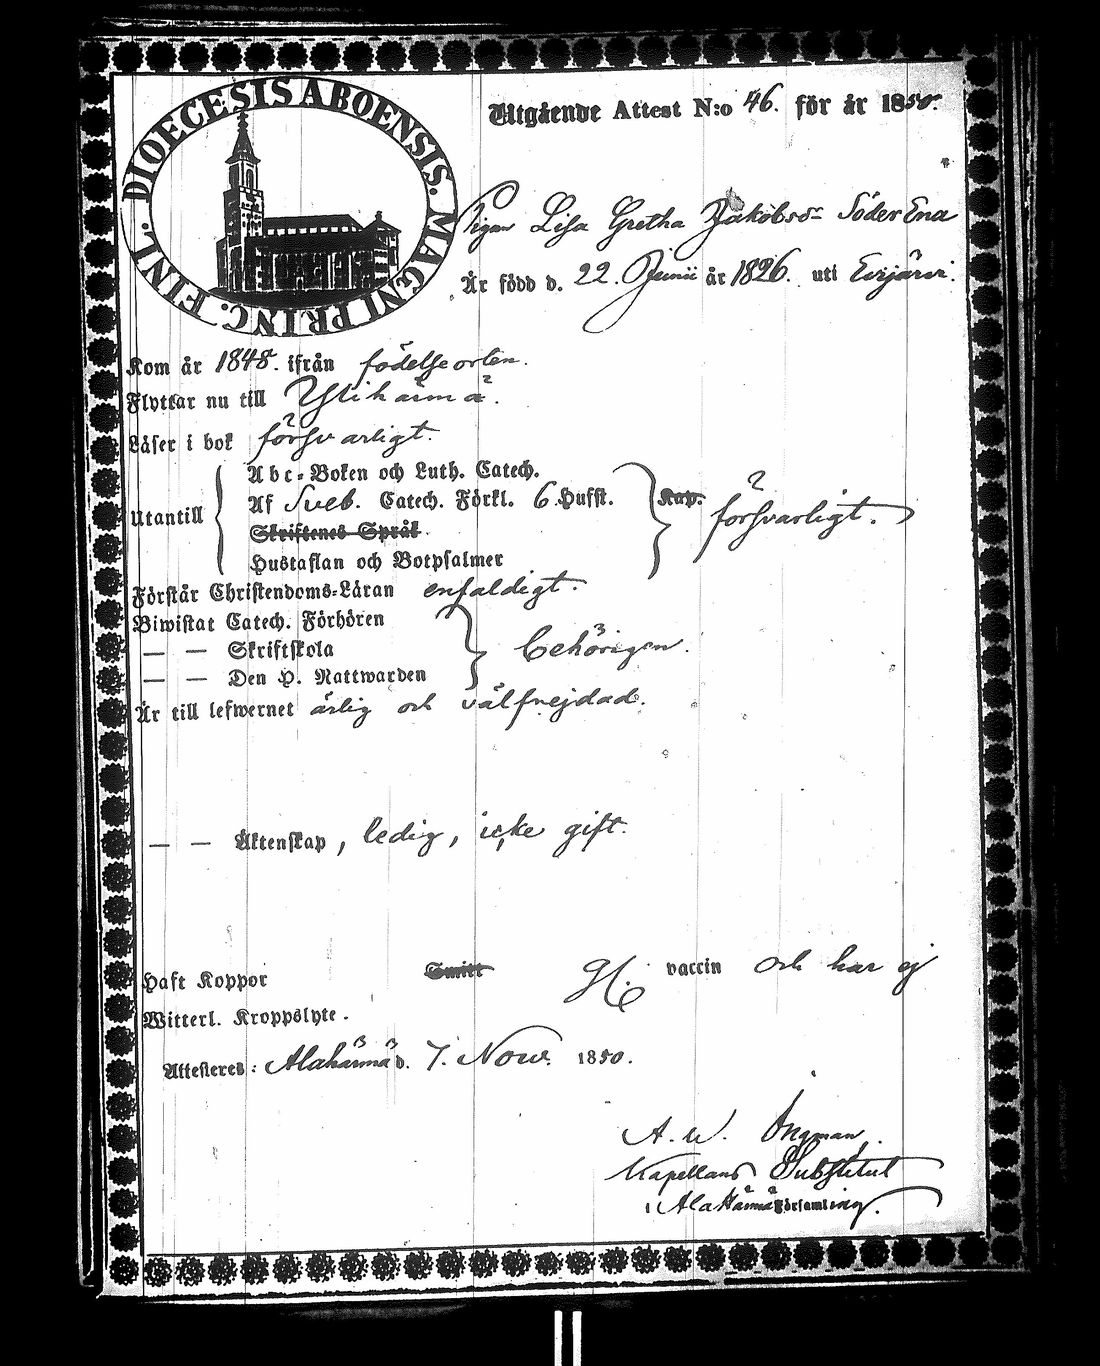 DIOECESIS ABOENSIS. MAGNI PRINC. FINL.
Utgående Attest N:o 46. för år 1850.
Pigan Lisa Gretha Jakobsdr Söder Ena
Är född d. 22. Junii år 1826. uti Evijärvi.
Kom år 1848. ifrån födelseorten.
Flyttar nu till Ylihärmä.
Läser i bok försvarligt.
Utantill
Abc-Boken och Luth. Catech.
Af Sveb. Catech. Förkl. 6 Hufst.
Skriftenes Språk
Hustaflan och Botpsalmer
Kap. försvarligt.
Förstår Christendoms-Läran enfaldigt.
Biwistat Catech. Förhören
— — Skriftskola
— — Den H. Nattwarden
behörigen.
Är till lefwernet ärlig och välfrejdad.
— — Äktenskap, ledig, icke gift.
Haft Koppor Smitt gm. vaccin och har ej
Witterl. Kroppslyte.
Attesteres: Alahärmä d. 7. Novr. 1850.
A. W. Ingman.
Kapellans Substitut
i Alahärmä Församling.